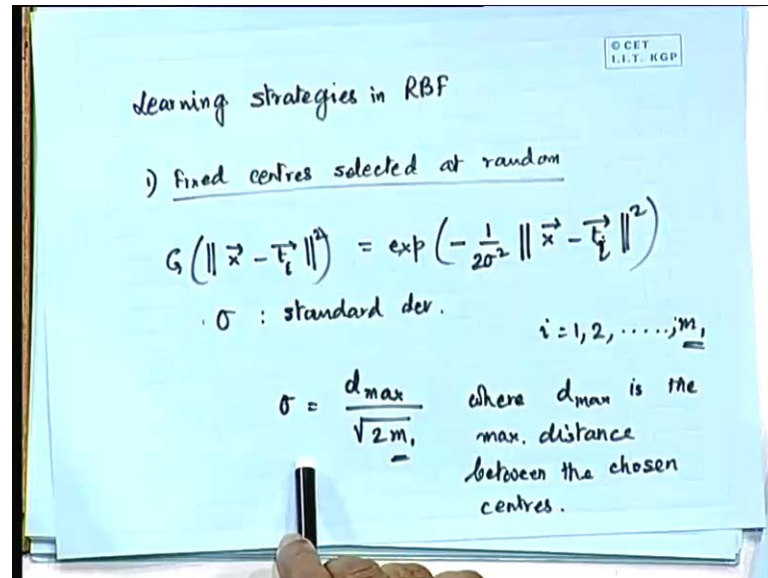 © CET
I.I.T. KGP
Learning strategies in RBF
1) Fixed centres selected at random
G(‖x⃗ - t⃗ᵢ‖²) = exp(-1/2σ² ‖x⃗ - t⃗ᵢ‖²)
σ : standard dev.
i = 1, 2, ....., m₁
σ = dmax/√2m₁ where dmax is the
max. distance
between the chosen
centres.